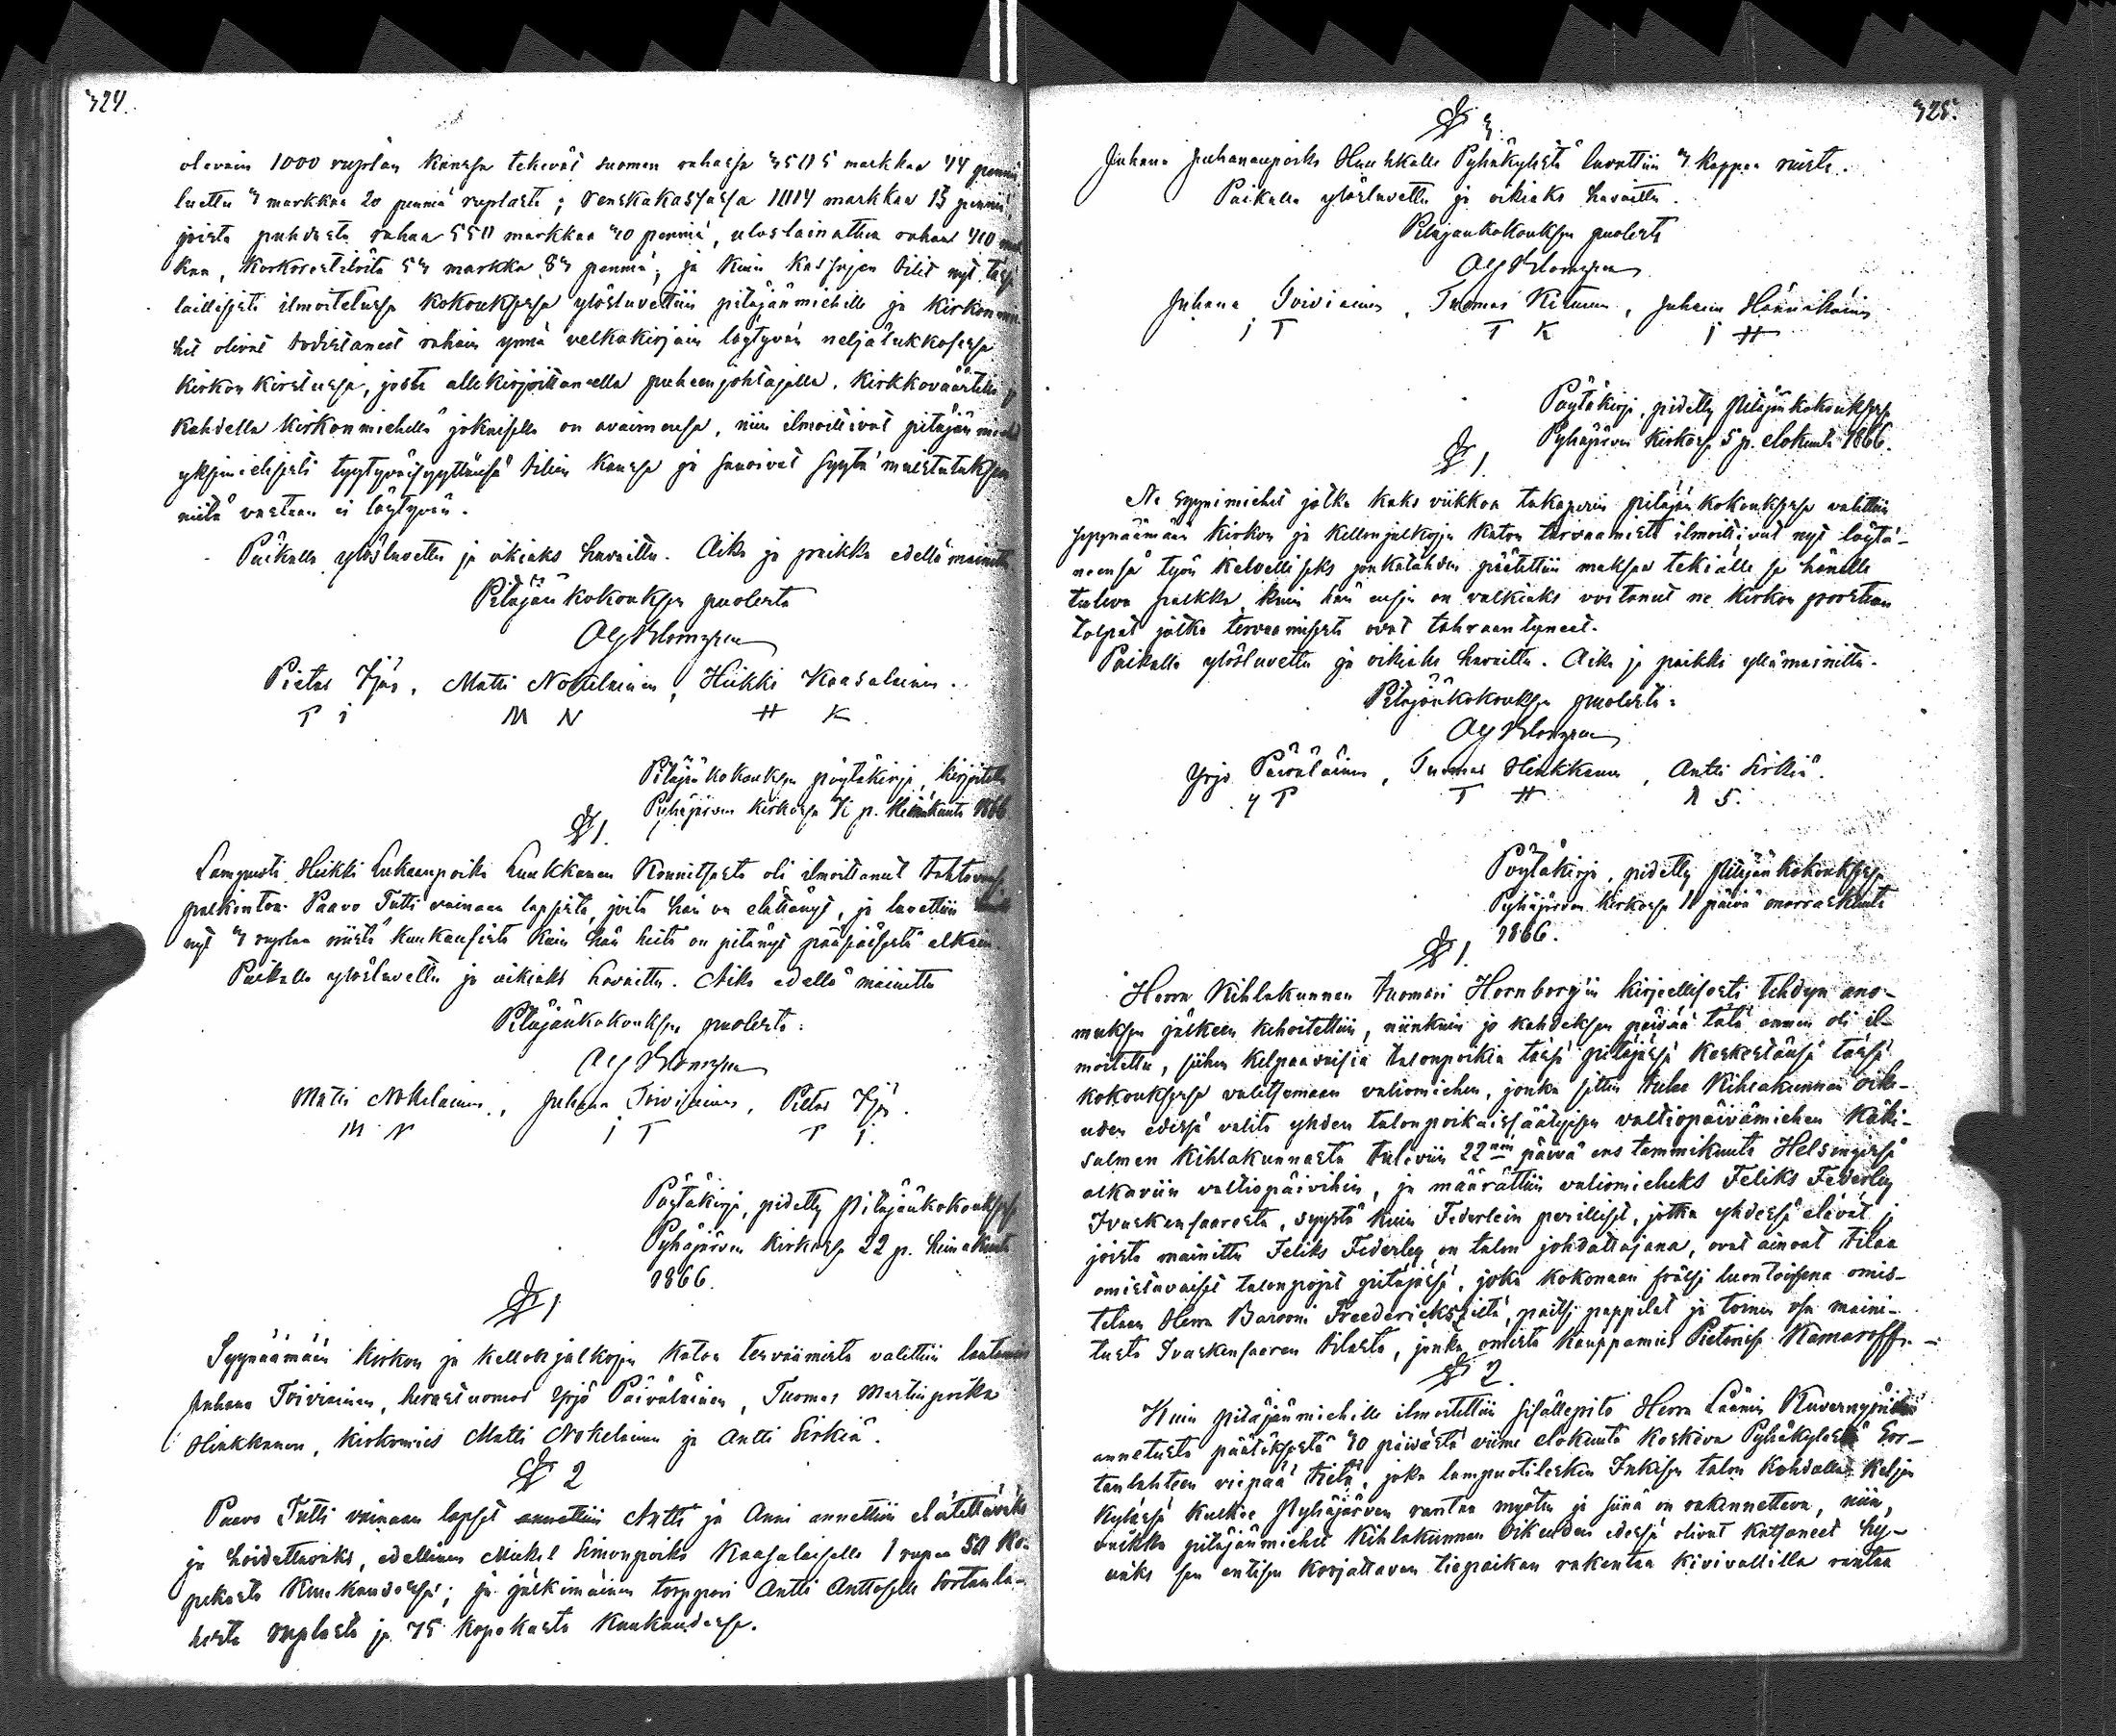 324.
olevain 1000 ruplan kanssa tekevät suomen rahassa markkaa 44 penniä
luettu 3 markkaa 20 penniä ruplasta; markkaa 13 penniä,
joista puhdasta rahaa markkaa 30 penniä, uloslainattua rahaa
kaa, korkorestilöitä 53 markka 83 penniä; ja kuin kassojen tilit nyt tässä
laillisesti ilmoitetussa kokouksessa ylösluvettiin pitäjänmiehille ja kirkonmie-
het olivat todistaneet rahain ynnä velkakirjain löytyvän neljälukkosessa
kirkon kirstussa, josta allekirjoittaneella puheenjohtajalla, kirkkoväärtillä ja
kahdella kirkonmiehellä jokaisella on avaimensa, niin ilmoittivat pitäjänmiehet
yksimielisesti tyytyväisyyttänsä tilein kanssa ja sanoivat syytä muistutuksen
niitä vastaan ei löytyvän.
Paikalla ylösluvettu ja oikiaks havaittu. Aika ja paikka edellä mainittu
Pitäjänkokouksen puolesta
Alf Blomqvist
Pietar Ijäs, Matti Nokelainen, Heikki Kaasalainen.
P I M N H K
Pitäjänkokouksen pöytäkirja, kirjoitettu
Pyhäjärven kirkossa p. Heinäkuuta 1866
§ 1.
Lampuoti Heikki Luukkanen Konnitsasta oli ilmoittanut tahtovansa
palkintoa Paavo Tutti vainaan lapsista, joita hän on elättänyt, ja luvattiin
nyt 3 ruplaa niistä kuukausista kuin hän heitä on pitänyt pääsiäisestä alkaen.
Paikalla ylösluvettu ja oikiaks havaittu. Aika edellä mainittu
Pitäjänkokouksen puolesta:
Alf Blomqvist
Matti Nokelainen, Juhana Toiviainen, Pietar Ijäs.
M N J T P I.
Pöytäkirja, pidetty Pitäjänkokouksessa
Pyhäjärven kirkossa 22 p. heinäkuuta
1866.
§ 1
Syynäämään kirkon ja kellonjalkojen katon tervaamista valittiin lautamies
Juhana Toiviainen, herastuomar Yrjö Päiväläinen, Tuomas Martinpoika
Hinkkanen, kirkomies Matti Nokelainen ja Antti Sirkiä.
§ 2
Paavo Tutti vainaan lapset annettiin Antti ja Anni annettiin elätettäväks
ja hoidettavaks, edellinen Mikkel Simonpoika Kaasalaiselle 1 rupla 50 ko-
pekasta kuukaudessa; ja jälkimäinen torppari Antti Anttoselle Sortanla-
hesta ruplasta ja 75 kopekasta kuukaudessa.
325.
§ 3.
Juhana Juhananpoika Huuhkalle Pyhäkylästä luvattiin 3 kappaa ruista.
Paikalla ylösluvettu ja oikiaks havaittu.
Pitäjänkokouksen puolesta
Alf Blomqvist
Juhana Toiviainen, Tuomas Kittunen, Juhana Hännikäinen
J T T K J H
Pöytäkirja, pidetty Pitäjänkokouksessa
Pyhäjärven kirkossa 5 p. elokuuta 1866.
§ 1.
Ne syynimiehet jotka kaks viikkoa takaperin pitäjänkokouksessa valittiin
syynäämään kirkon ja kellonjalkojen katon tervaamista ilmoittivat nyt löytä-
neensä työn kelvolliseks jonkatähden päätettiin maksaa tekiälle se hänelle
tuleva palkka, kuin hän ensin on valkiaks vostanut ne kirkon poortaan
tolpat jotka tervaamisesta ovat tahraantuneet.
Paikalla ylösluvettu ja oikiaks havaittu. Aika ja paikka yllämainittu.
Pitäjänkokouksen puolesta:
Alf Blomqvist
Yrjö Päiväläinen, Tuomas Hinkkanen, Antti Sirkiä.
Y P T H A S.
Pöytäkirja, pidetty Pitäjänkokouksessa
Pyhäjärven kirkossa päivä marraskuuta
1866.
§ 1.
Herra Kihlakunnan tuomari Hornborg'in kirjeellisesti tehdyn ano-
muksen jälkeen kehoitettiin, niinkuin jo kahdeksan päivää tätä ennen oli il-
moitettu, siihen kelpaavaisia talonpoikia tässä pitäjässä keskestänsä tässä
kokouksessa valitsemaan valiomiehen, jonka sitten tulee Kihlakunnan oike-
uden edessä valita yhden talonpoikaissäätyisen valtiopäivämiehen Käki-
salmen kihlakunnasta tuleviin 22nen päivä ens tammikuuta Helsingissä
alkaviin valtiopäivihin, ja määrättiin valiomieheks Feliks Federley
Ivaskensaaresta, syystä kuin Federlein perilliset, jotka yhdessä elävät ja
joista mainittu Feliks Federley on talon johdattajana, ovat ainoat tilaa
omistavaiset talonpojat pitäjässä, joka kokonaan frälssi luontoisena omis-
tetaan Herra Barooni Freedericksziltä, paitsi pappilat ja toinen osa maini-
tusta Ivaskensaaren tilasta, jonka omista kauppamies Pietarissa Kamaroff.
§ 2.
Kuin pitäjänmiehille ilmoitettiin sisällepito Herra Läänin Kuvernyörin
annetusta päätöksestä 30 päivästä viime elokuuta koskeva Pyhäkylästä Sor-
tanlahteen viepää tietä, joka lampuotilesken Inkisen talon kohdalla Keljan
kylässä kulkee Pyhäjärven rantaa myöten ja siinä on rakennettava, niin,
vaikka pitäjänmiehet Kihlakunnan Oikeuden edessä olivat katsoneet hy-
väks sen entisen korjattavan tiepaikan rakentaa kivivallilla rantaa